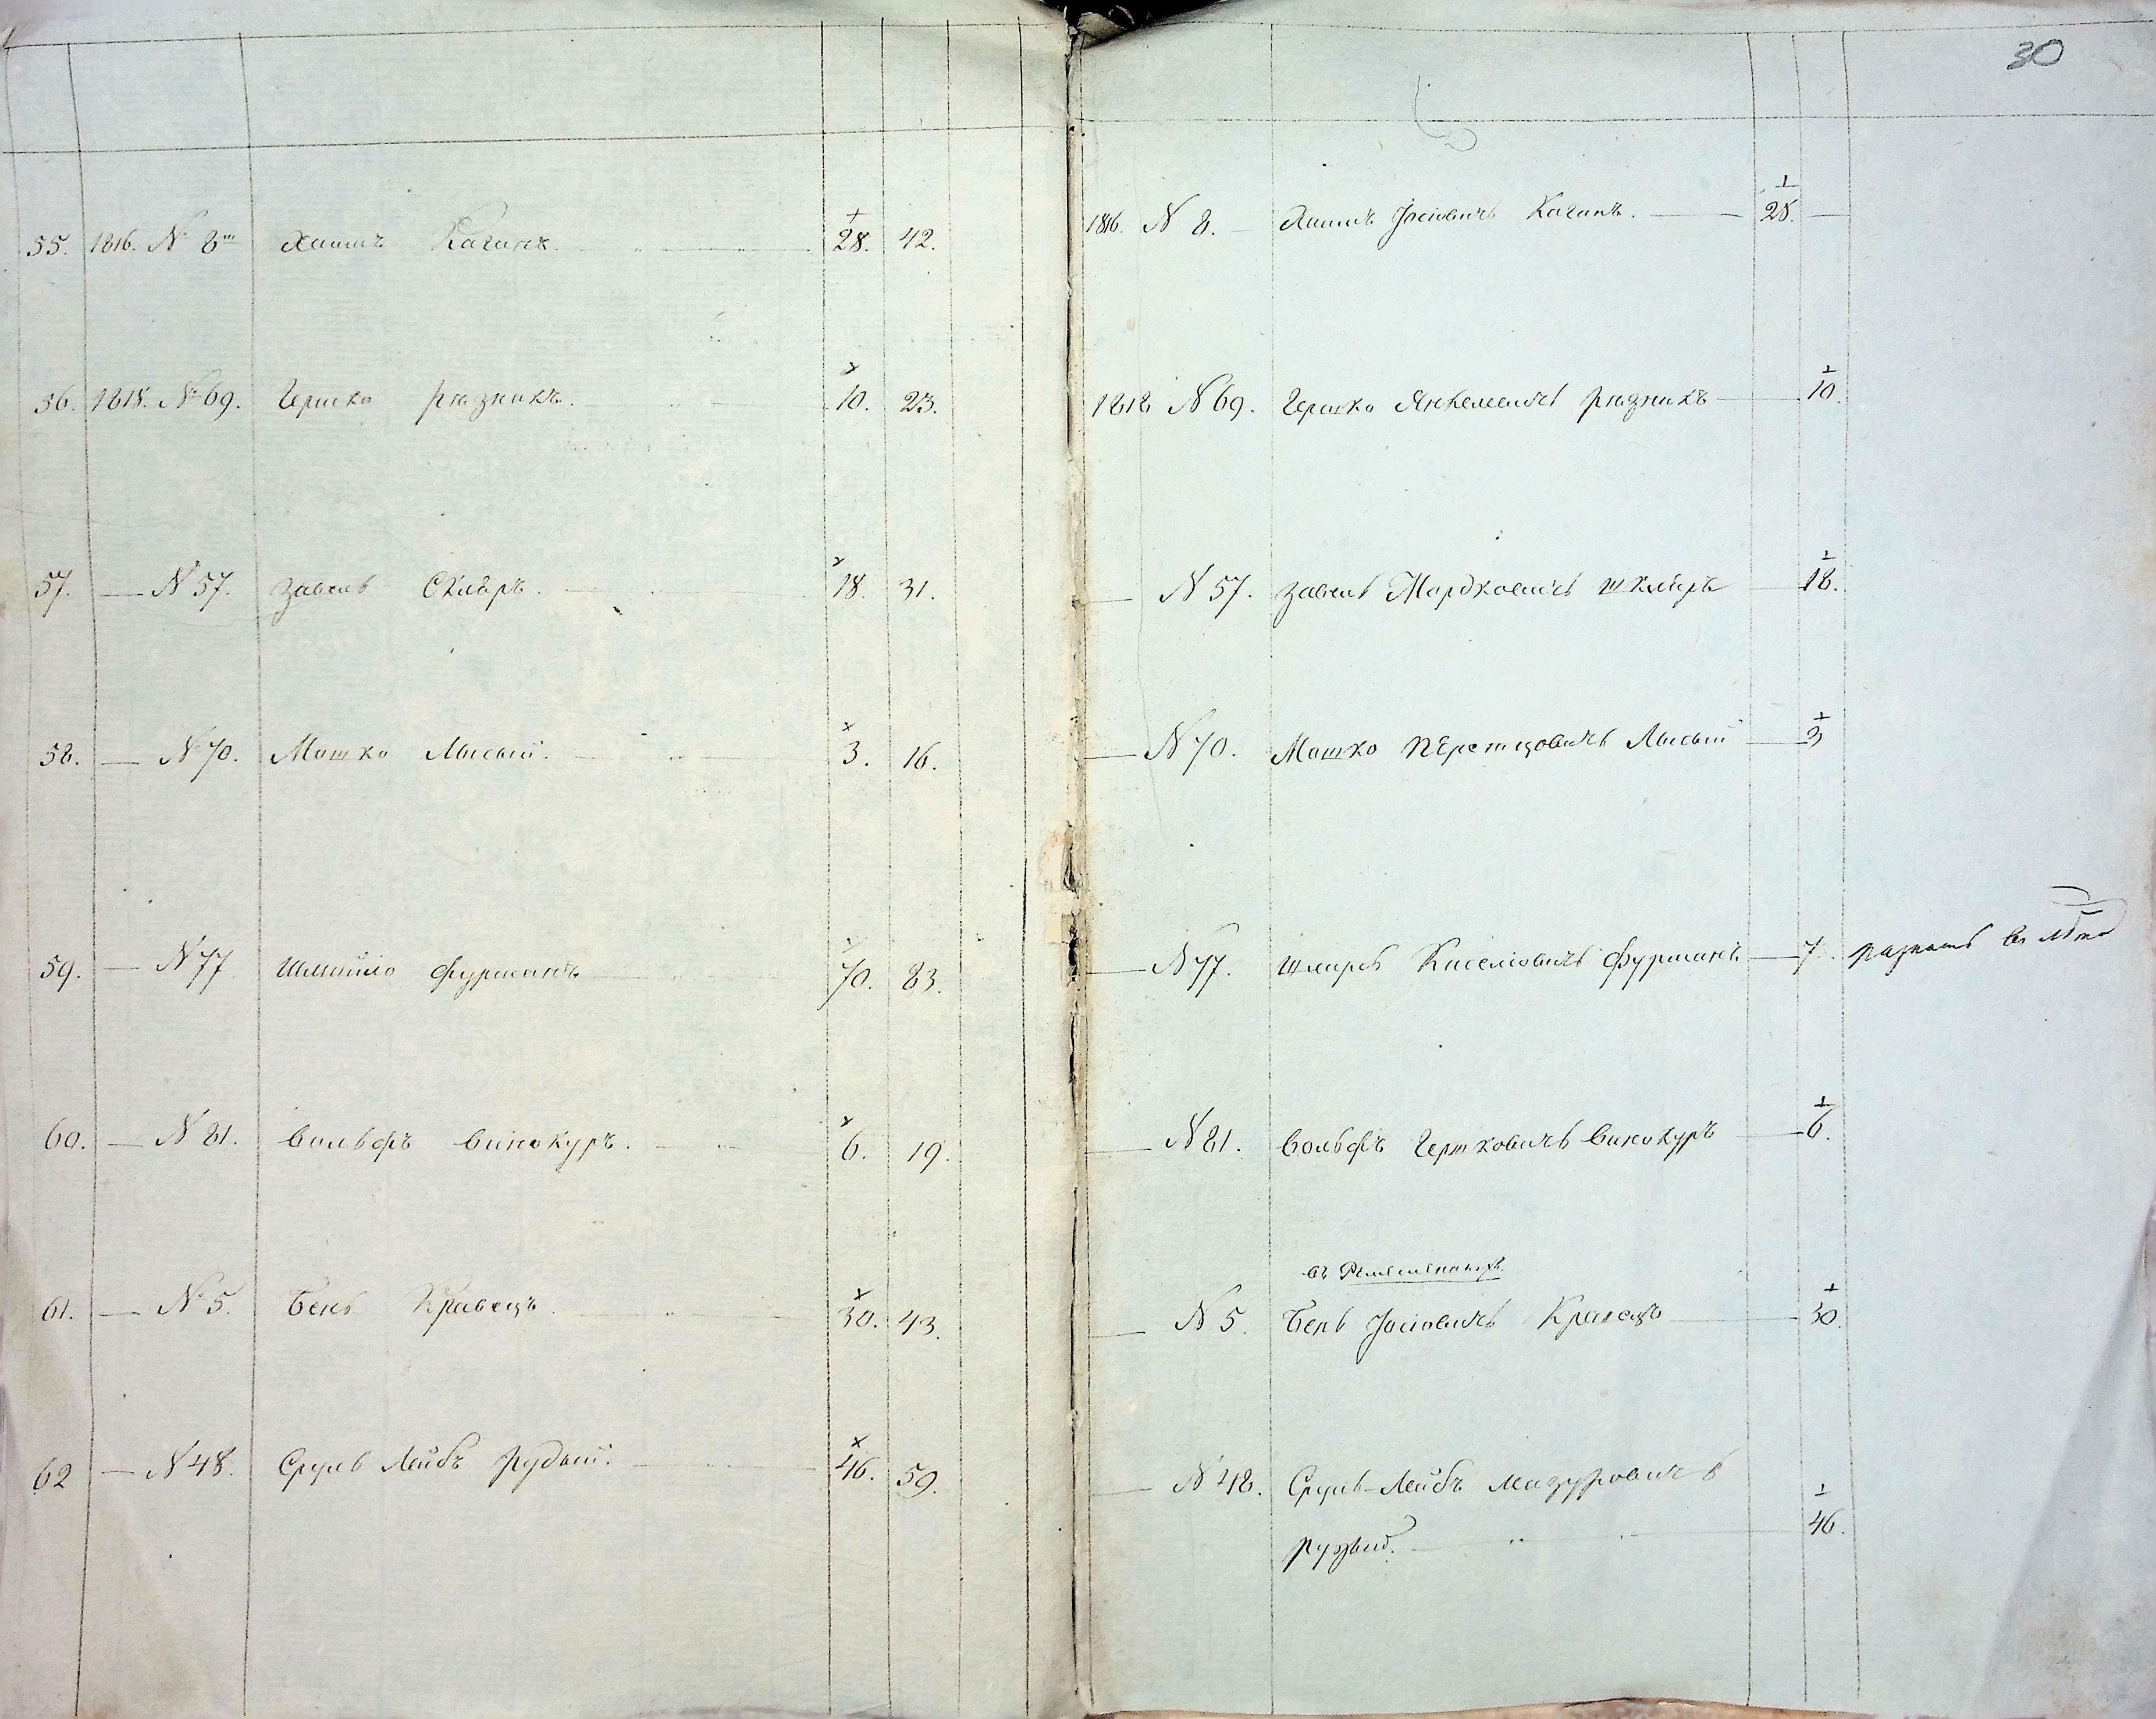 30
55. 1816. № 8й Хаимъ Каганъ. 28. 42.
56. 1818. № 69. Гершко Рѣзникъ. 10. 23.
57. — № 57. Завель Скляръ. 18. 31.
58. — № 70. Мошко Лысый. 3. 16.
59. — № 77 Шмойло Фурманъ 70. 83.
60. — № 81. Вольфъ Винокуръ. 6. 19.
61. — № 5. Бень Кравецъ 30. 43.
62 — № 48. Сруль Лейбъ Рудый. 46. 59.
1816. № 8. Хаимъ Іосіовичъ Каганъ. 28.
1818 № 69. Гершко Янкелевичъ Рѣзникъ 10.
— № 57. Завель Мордковичъ Шкляръ 18.
— № 70. Мошко Лысый 3
— № 77. Киселіовичъ Фурманъ 7. разность въ лѣта
— № 81. Вольфъ Гершковичъ Винокуръ 6.
въ Ремесленныхъ
— № 5. Бень Іосіовичъ Кравецъ 30.
— № 48. Сруль-Лейбъ Мазуровичъ
Рудый. 46.